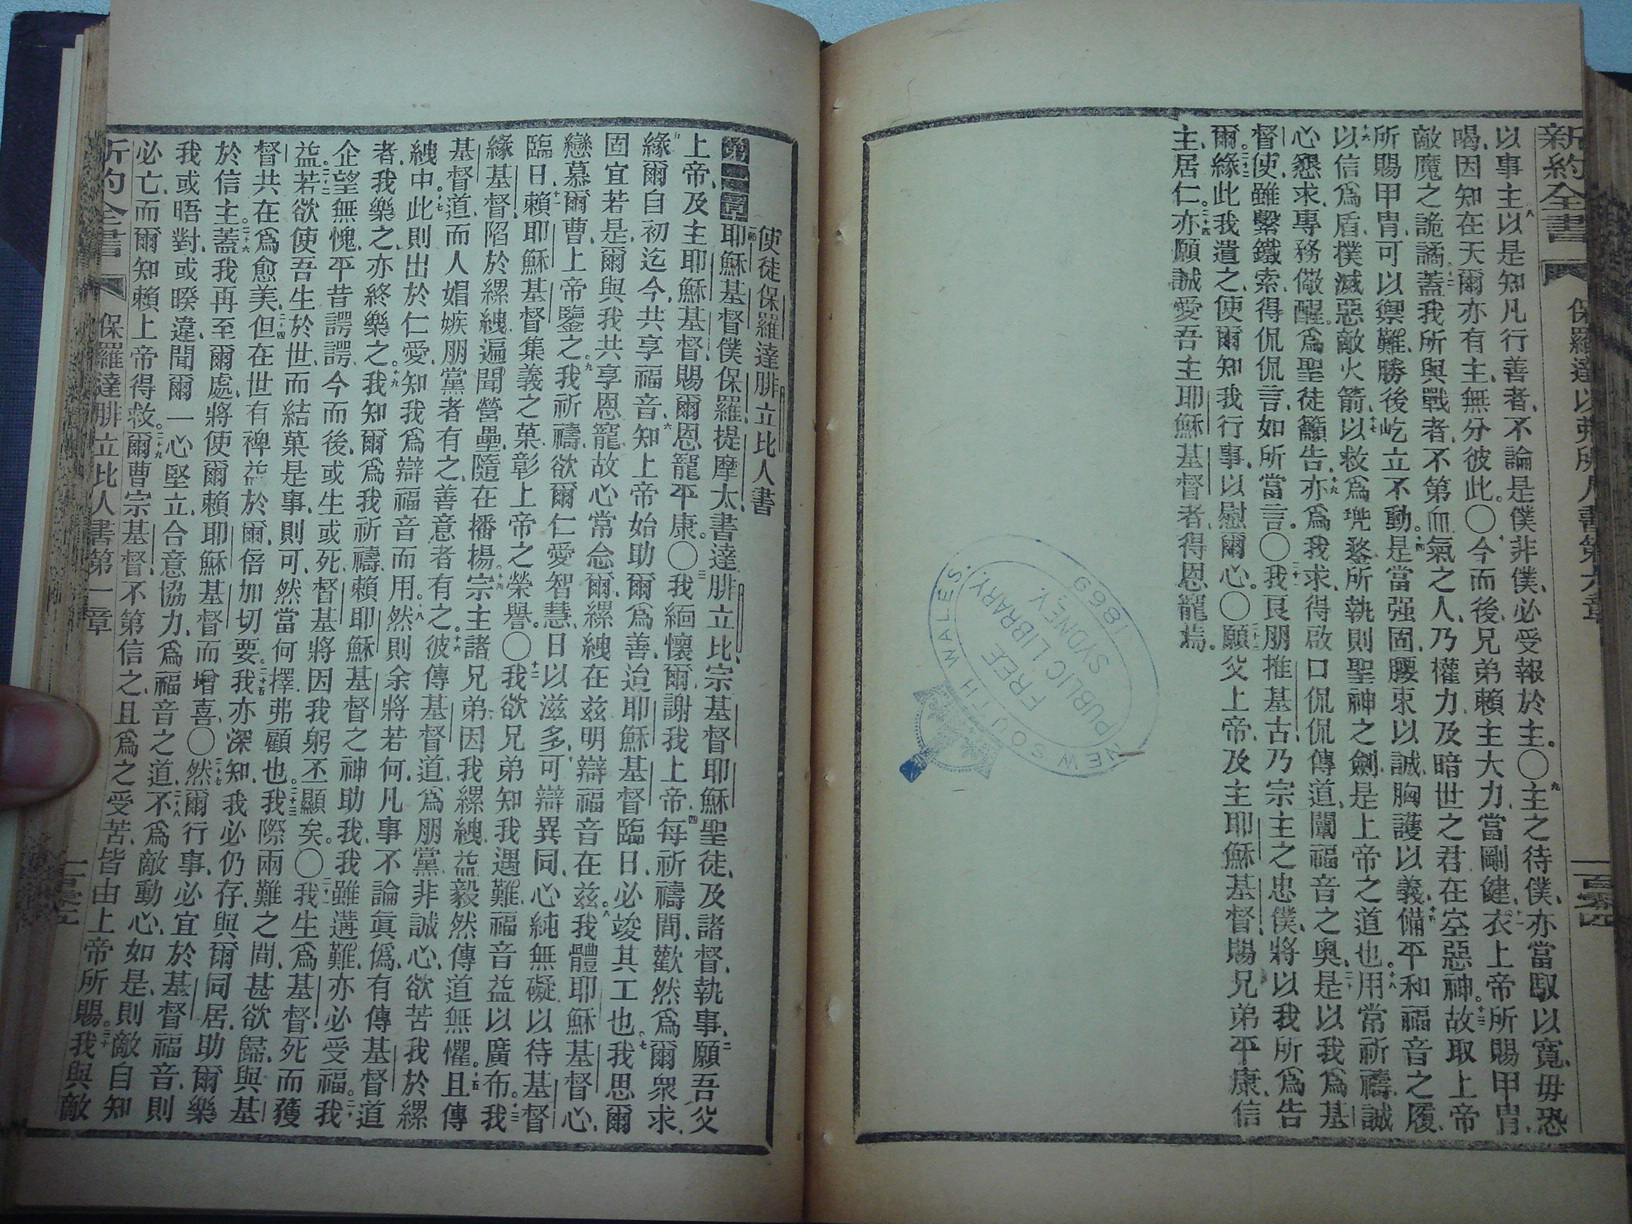 新約全書 保羅達以弗所人書第六章 一百零四
以事主、八以是知凡行善者、不論是僕非僕、必受報於主。〇九主之待僕、亦當馭以寬、毋恐
喝、因知在天爾亦有主、無分彼此。〇十今而後、兄弟賴主大力、當剛健、十一衣上帝所賜甲冑、
敵魔之詭譎、十二蓋我所與戰者、不第血氣之人、乃權力及暗世之君、在空惡神。十三故取上帝
所賜甲冑、可以禦難、勝後屹立不動、十四是當强固、腰束以誠、胸護以義、十五備平和福音之履、
十六以信爲盾、撲滅惡敵火箭、十七以救爲兜鍪、所執則聖神之劍、是上帝之道也。十八用常祈禱、誠
心懇求、專務儆醒、爲聖徒籲告、十九亦爲我求、得啟口侃侃傳道、闡福音之奧、二十是以我爲基
督使、雖繫鐵索、得侃侃言、如所當言。〇二十一我良朋推基古、乃宗主之忠僕、將以我所爲告
爾、二十二緣此我遣之、使爾知我行事、以慰爾心。〇二十三願父上帝、及主耶穌基督、賜兄弟平康、信
主、居仁、二十四亦願誠愛吾主耶穌基督者、得恩寵焉。
NEW SOUTH WALES.
FREE
PUBLIC LIBRARY,
SYDNEY.
1869
使徒保羅達腓立比人書
第一章 一耶穌基督僕保羅、提摩太、書達腓立比、宗基督耶穌聖徒、及諸督、執事、二願吾父
上帝、及主耶穌基督、賜爾恩寵平康。〇三我緬懷爾、謝我上帝、四每祈禱間、歡然爲爾衆求、
五緣爾自初迄今、共享福音、六知上帝始助爾爲善、迨耶穌基督臨日、必竣其工也。七我思爾
固宜若是、爾與我共享恩寵、故心常念爾、縲絏在茲、明辯福音在茲。八我體耶穌基督心、
戀慕爾曹、上帝鑒之、九我祈禱、欲爾仁愛智慧、日以滋多、十可辯異同、心純無礙、以待基督
臨日、十一賴耶穌基督、集義之菓、彰上帝之榮譽。〇十二我欲兄弟知我遇難、福音益以廣布、十三我
緣基督陷於縲絏、遍聞營壘、隨在播揚。十四宗主諸兄弟、因我縲絏、益毅然傳道無懼。十五且傳
基督道、而人媢嫉朋黨者有之、善意者有之。十六彼傳基督道、爲朋黨、非誠心、欲苦我於縲
絏中、十七此則出於仁愛、知我爲辯福音而用。十八然則余將若何、凡事不論眞僞、有傳基督道
者、我樂之、亦終樂之。十九我知爾爲我祈禱、賴耶穌基督之神助我、我雖遘難、亦必受福。二十我
企望無愧、平昔諤諤、今而後、或生或死、基督將因我躬丕顯矣。〇二十一我生爲基督、死而獲
益。二十二若欲使吾生於世、而結菓是事、則可、然當何擇弗顧也。二十三我際兩難之間、甚欲歸與基
督共在爲愈美、二十四但在世有裨益於爾、倍加切要。二十五我亦深知我必仍存、與爾同居、助爾樂
於信主。二十六蓋我再至爾處、將使爾賴耶穌基督而增喜。〇二十七然爾行事、必宜於基督福音、則
我或晤對、或暌違、聞爾一心堅立、合意協力、爲福音之道、二十八不爲敵動心、如是、則敵自知
必亡、而爾知賴上帝得救。二十九爾曹宗基督、不第信之、且爲之受苦、皆由上帝所賜。三十我與敵
新約全書 保羅達腓立比人書第一章